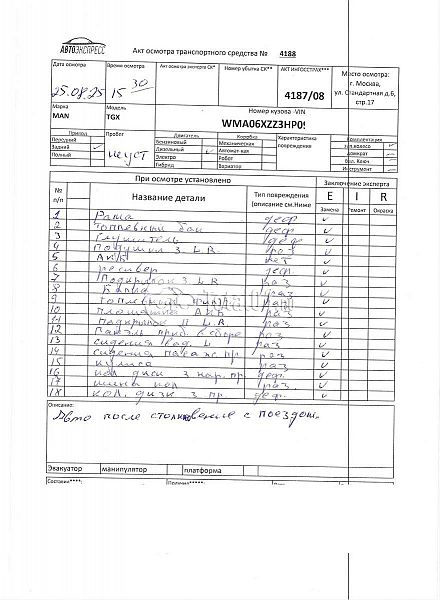 АВТОЭКСПРЕСС
Акт осмотра транспортного средства № 4188
Дата осмотра
Время осмотра
Акт осмотра эксперта СК*
Номер убытка СК**
АКТ ИНГОССТРАХ***
Место осмотра:
г. Москва,
ул. Стандартная д.6,
стр.17
25.08.25
15 30
4187/08
Марка
Модель
Номер кузова -VIN
MAN
TGX
WMA06XZZ3HP0
Привод
Пробег
Двигатель
Коробка
Характеристика
повреждения
Комплектация
Передний
Бензиновый
Механическая
зап.колесо ✓
Задний ✓
Дизельный ✓
Автомат-кая
Домкрат
Полный
неуст
Электро
Робот
Вал. Ключ
Гибрид
Вариатор
Инструмент
При осмотре установлено
Заключение эксперта
№
п/п
Название детали
Тип повреждения
(описание см.Ниже
E I R
Замена Ремонт Окраска
1 Рама деф ✓
2 Топливный бак деф ✓
3 Глушитель деф ✓
4 Подушки З. L. R. раз ✓
5 АКБ нет ✓
6 ресивер деф. ✓
7 З L R раз ✓
8 раз ✓
9 топливный раз ✓
10 площадка АКБ раз ✓
11 П L.R раз ✓
12 Панель приб. в сборе раз ✓
13 сидения вод. L раз ✓
14 сидения пассаж. пр раз ✓
15 кулиса раз ✓
16 кол диск З нар. пр. деф. ✓
17 шина кол раз. ✓
18 кол. диск З. пр. деф. ✓
Описание:
Авто после столкновение с поездом.
Эвакуатор
манипулятор
платформа